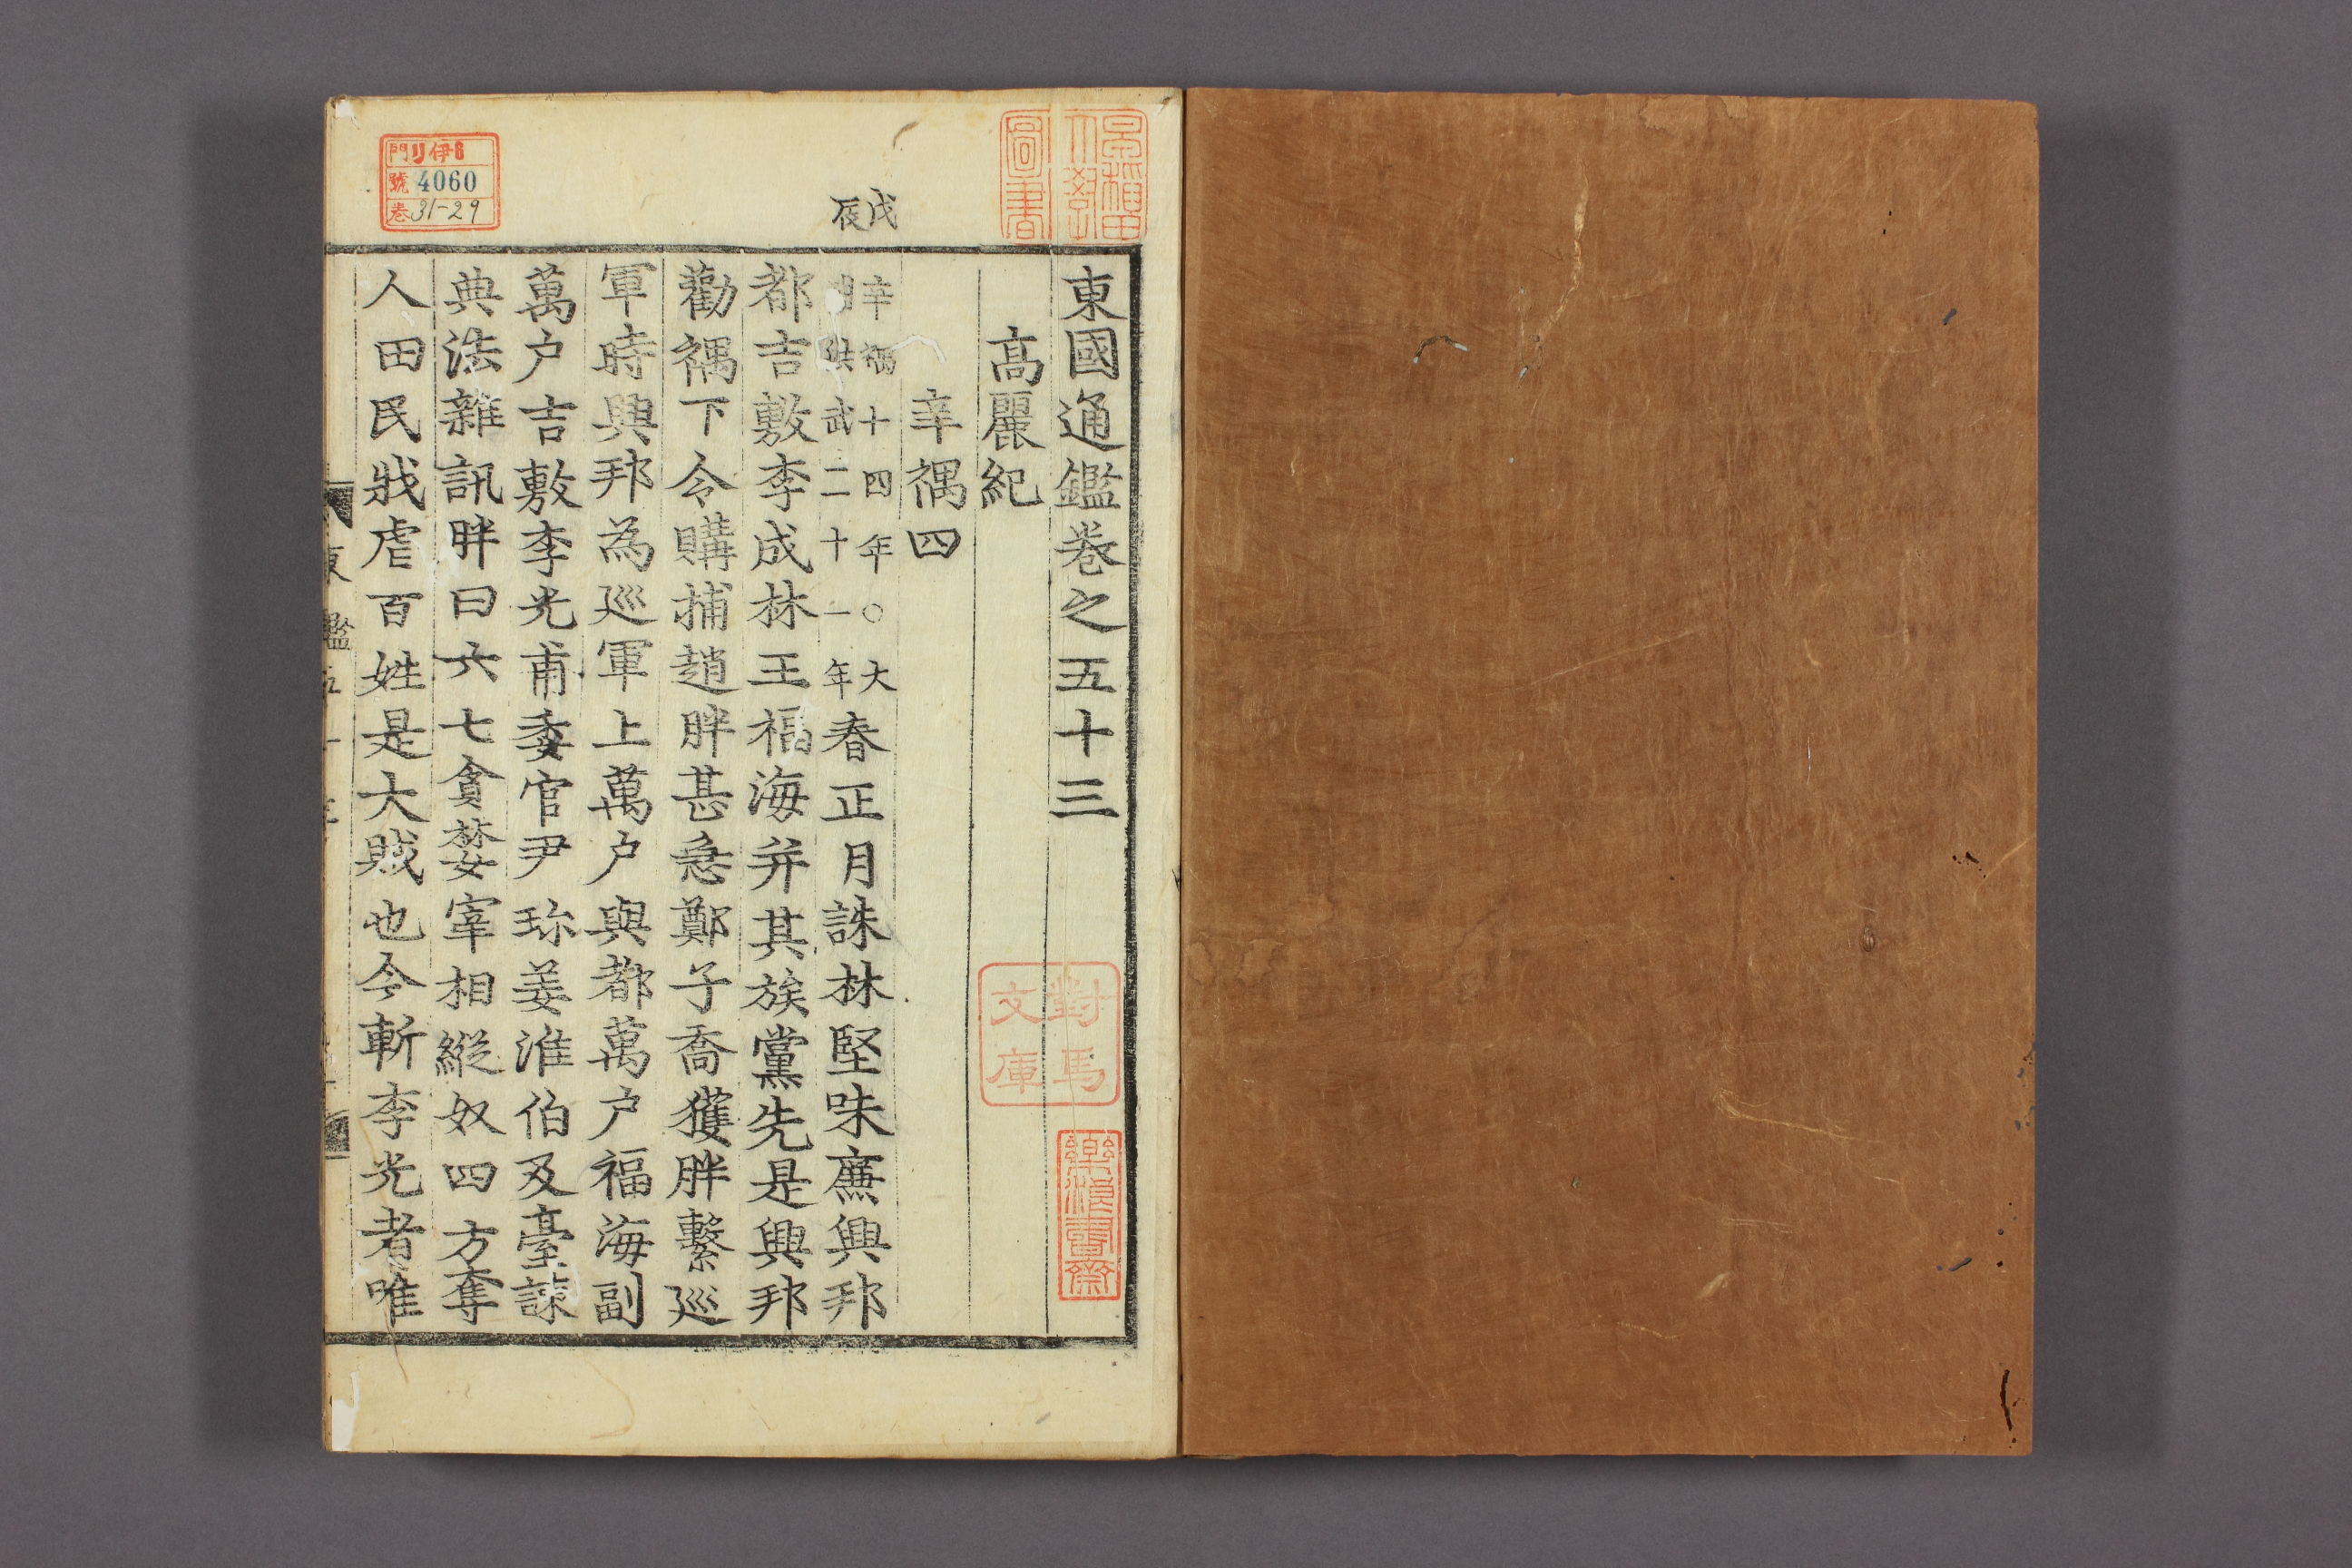 東國通鑑卷之五十三
高麗紀
辛禑四
戊辰
辛禑十四年○大
明洪武二十一年
春正月誅林堅味廉興邦
都吉敷李成林王福海并其族黨先是興邦
勸禑下令購捕趙胖甚急鄭子喬獲胖繫巡
軍時興邦為巡軍上萬户與都萬户福海副
萬户吉敷李光甫委官尹珎姜淮伯及臺諫
典法雜訊胖曰六七貪婪宰相縱奴四方奪
人田民戕虐百姓是大賊也今斬李光者唯
早稻田大學圖書
對馬文庫
樂浪書齋
門リ伊8
號4060
卷31-29